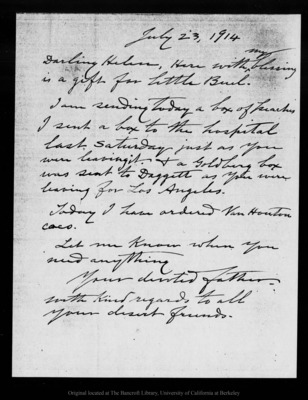 July 23, 1914
my
Darling Helen, Here with, blessing
is a gift for little Buel.
I am sending today a box of peaches
I sent a box to the hospital
last Saturday just as you
were leaving it. & a box
was sent to Daggett as you were
leaving for Los Angeles.
Today I have ordered Van Houten
coco.
Let me know when you
need anything
Your devoted father.
with kind regards to all
your desert friends.
Original located at The Bancroft Library, University of California at Berkeley